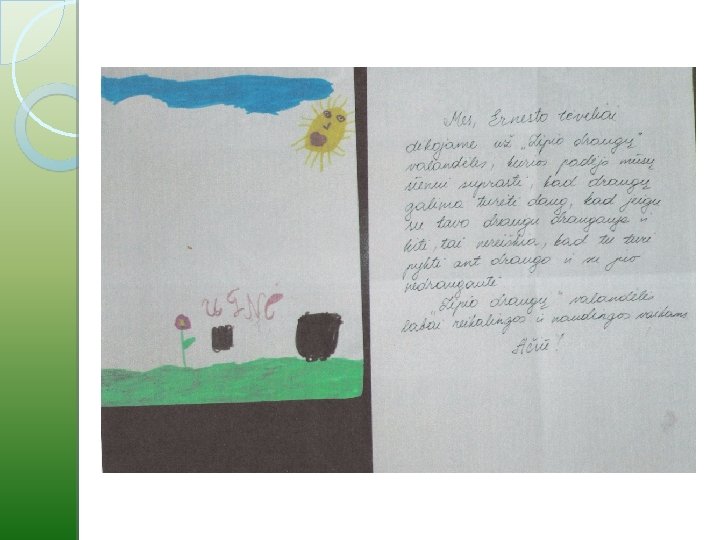 UGNĖ
Mes, Ernesto tėveliai
dėkojame už „Zipio draugų“
valandėles, kurios padėjo mūsų
sūnui suprasti, kad draugų
galima turėti daug, kad jeigu
su tavo draugu draugauja ir
kiti, tai nereiškia, kad tu turi
pykti ant draugo ir su juo
nedraugauti.
„Zipio draugų“ valandėlės
labai reikalingos ir naudingos vaikams.
Ačiū!